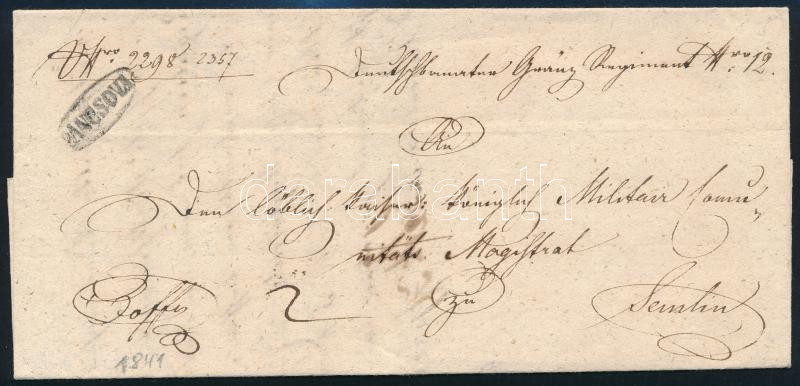 Nro. 2298 2357
Deutschbanater Gränz Regiment Nro 12.
PANCSOVA
An
Den löblich kaiser: königlich Militair Comu-
nitäts Magistrat
zu
Semlin
2
1841
darabanth